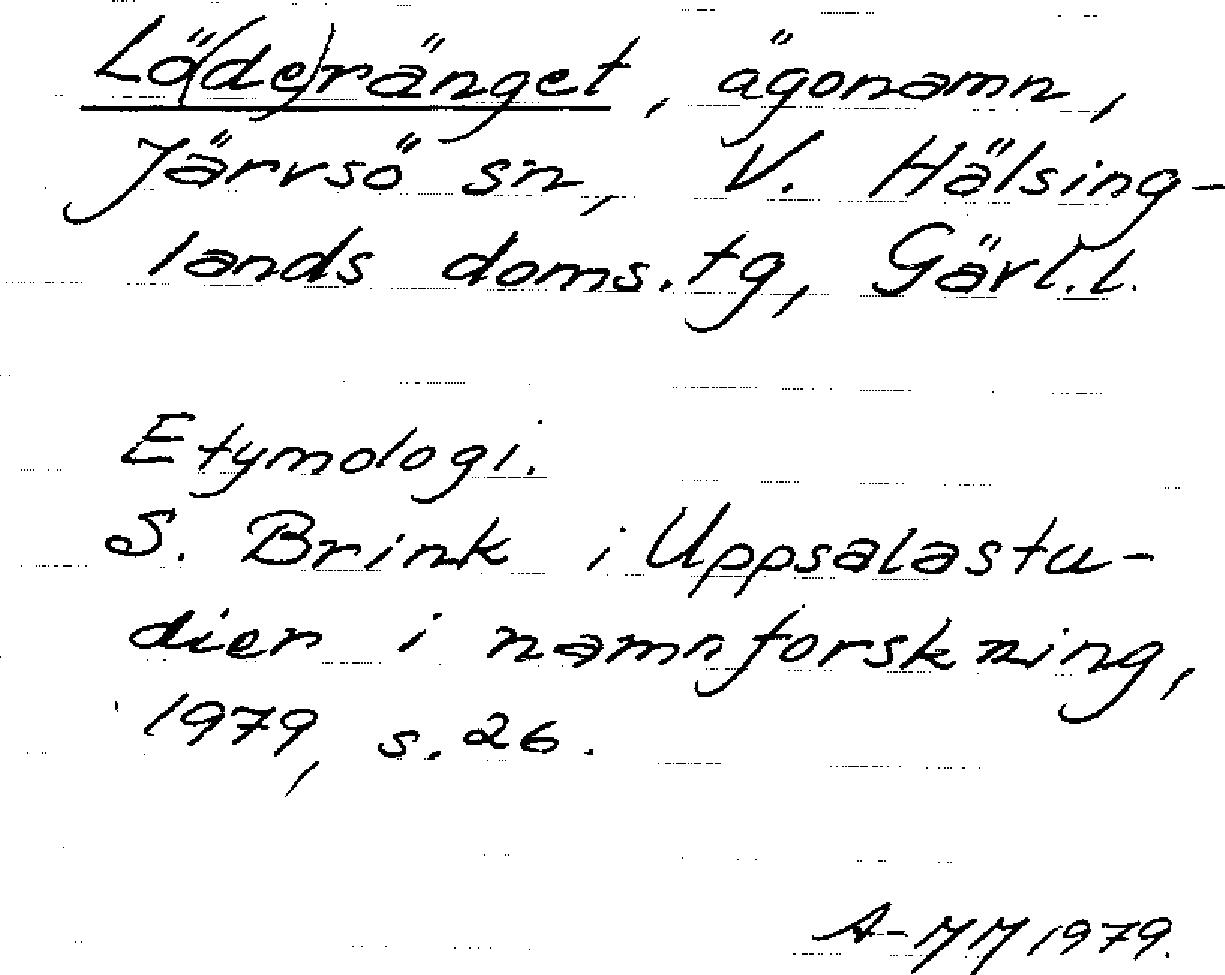 Lö(de)ränget, ägonamn,
Järvsö sn, V. Hälsing-
lands doms.tg, Gävl.l.
Etymologi.
S. Brink i Uppsalastu-
dier i namnforskning,
1979, s. 26.
A-MM 1979.